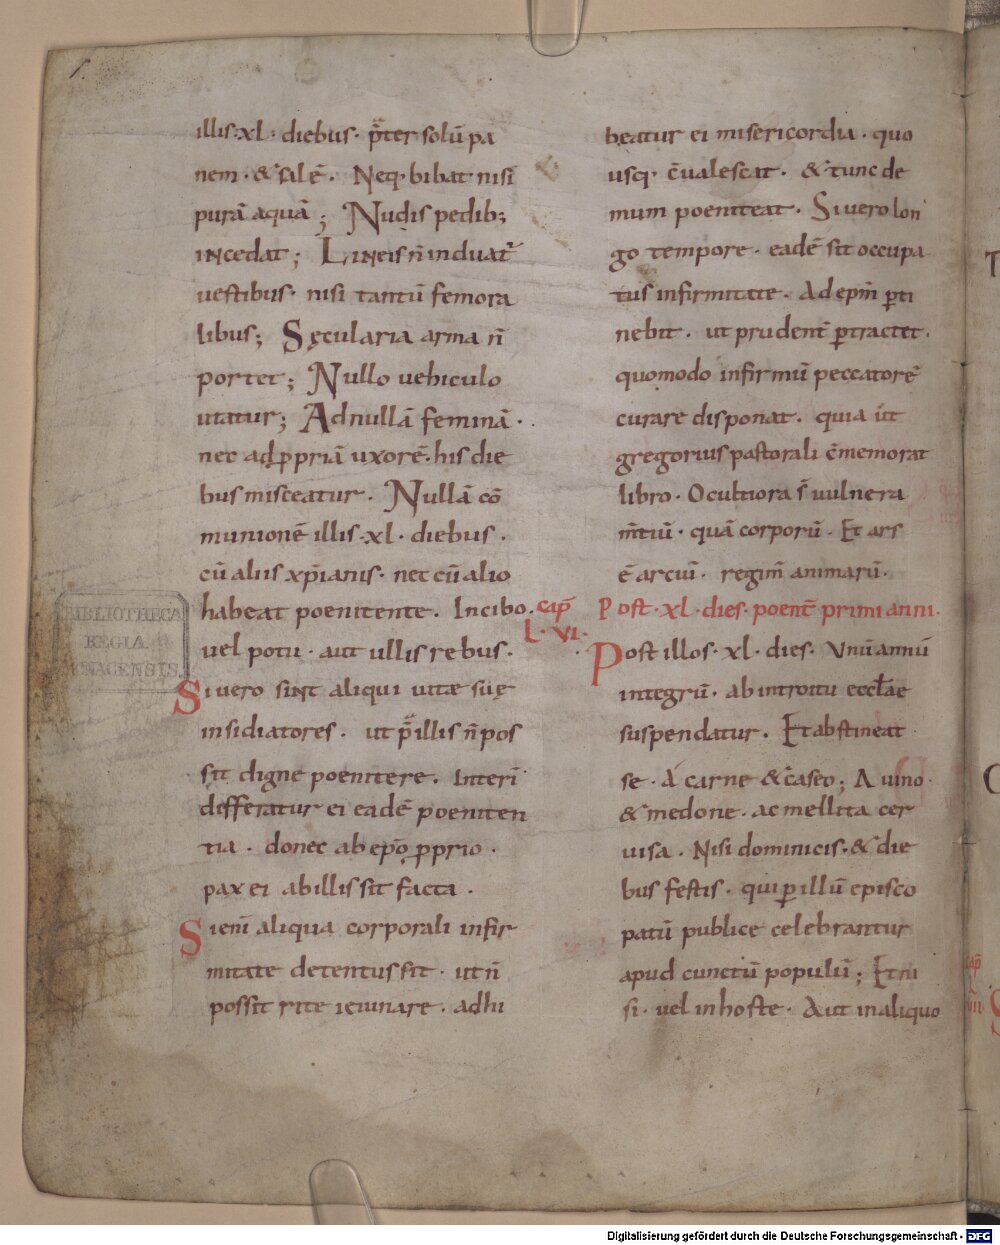 illis·xl· diebus· p̃ter solũ pa
nem · & salẽ · Neq· bibat nisi
purã aquã ; Nudis pedib;
incedat ; Lineis ñ induat᷑
uestibus· nisi tantũ femora
libus; Sęcularia arma ñ
portet ; Nullo uehiculo
utatur ; Ad nullã feminã ·
nec ad ꝓpriã uxorẽ · his die
bus misceatur · Nullã cõ
munionẽ illis ·xl· diebus ·
cũ aliis xp̃ianis · nec cũ alio
habeat poenitente · In cibo ·
uel potu · aut ullis rebus ·
Si uero sint aliqui uitae suę
insidiatores · ut p̃ illis ñ pos
sit digne poenitere · Interĩ
differatur ei eadẽ poeniten
tia · donec ab ep̃o ꝓprio ·
pax ei ab illis sit facta ·
Si enĩ aliqua corporali infir
mitate detentus sit · ut ñ
possit rite ieiunare · adhi
beatur ei misericordia · quo
usq· c̃ualescat · & tunc de
mum poeniteat · Si uero lon
go tempore · eadẽ sit occupa
tus infirmitate · Ad ep̃m ꝑti
nebit · ut prudent̃ ꝑtractet ·
quomodo infirmũ peccatorẽ
curare disponat · quia ut
gregorius pastorali c̃memorat
libro · Occultiora s̃ uulnera
m̃tiũ · quã corporũ · Et ars
ẽ arciũ · regim̃ animarũ ·
cap̃ Post · xl · dies · poenĩt primi anni ·
L·VI·
Post illos · xl · dies · Vnũ annũ
integrũ · ab introitu ecclae
suspendatur · Et abstineat
se · A carne & caseo ; A uino ·
& medone · ac mellita cer
uisa · Nisi dominicis · & die
bus festis · qui ꝑ illũ episco
patũ publice celebrantur
apud cunctũ populũ ; Et ni
si · uel in hoste · Aut in aliquo
BIBLIOTHECA
REGIA
MONACENSIS.
Digitalisierung gefördert durch die Deutsche Forschungsgemeinschaft - DFG